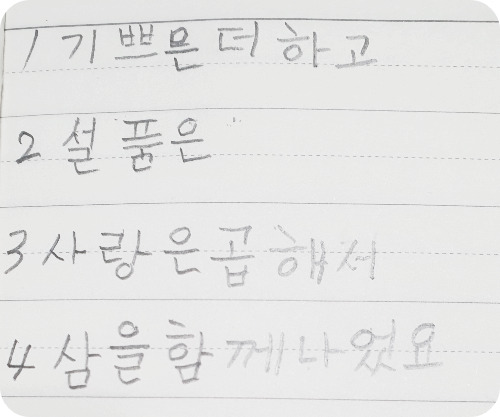 1 기쁘믄 더 하고
2 설 품은
3 사랑은 곱 해서
4 삼을 함 께 나 었요